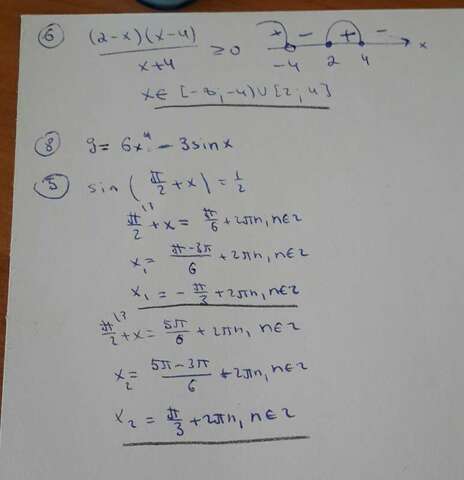 6 (2-x)(x-4) / x+4 ≥ 0 + - + - x
-4 2 4
x∈ [-∞, -4) ∪ [2; 4]
8 y = 6x⁴ - 3sinx
5 sin (π/2 + x) = 1/2
π/2 ^{\3} + x = π/6 + 2πn, n∈z
x₁ = π-3π / 6 + 2πn, n∈z
x₁ = - π/3 + 2πn, n∈z
π/2 ^{\3} + x = 5π/6 + 2πn, n∈z
x₂ = 5π-3π / 6 + 2πn, n∈z
x₂ = π/3 + 2πn, n∈z